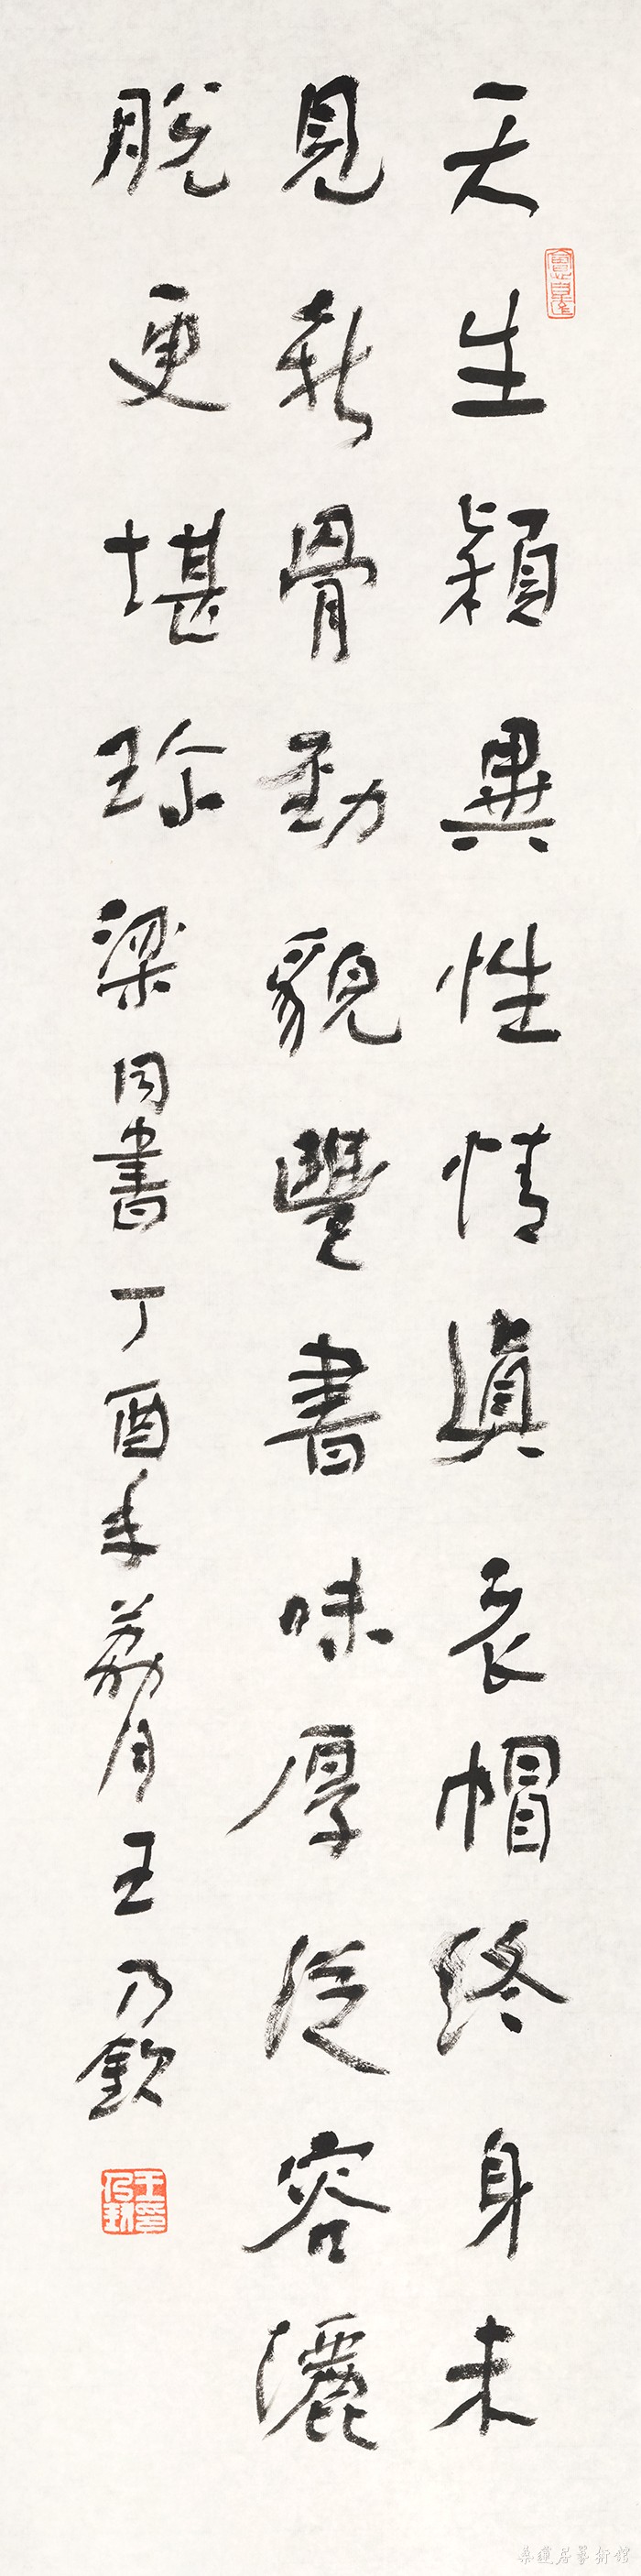 天生穎異性情眞衣帽終身未
見新骨勁貌豐書味厚從容灑
脫更堪珍梁同書丁酉年荔月王乃欽
王印乃欽
桑蓮居藝術館